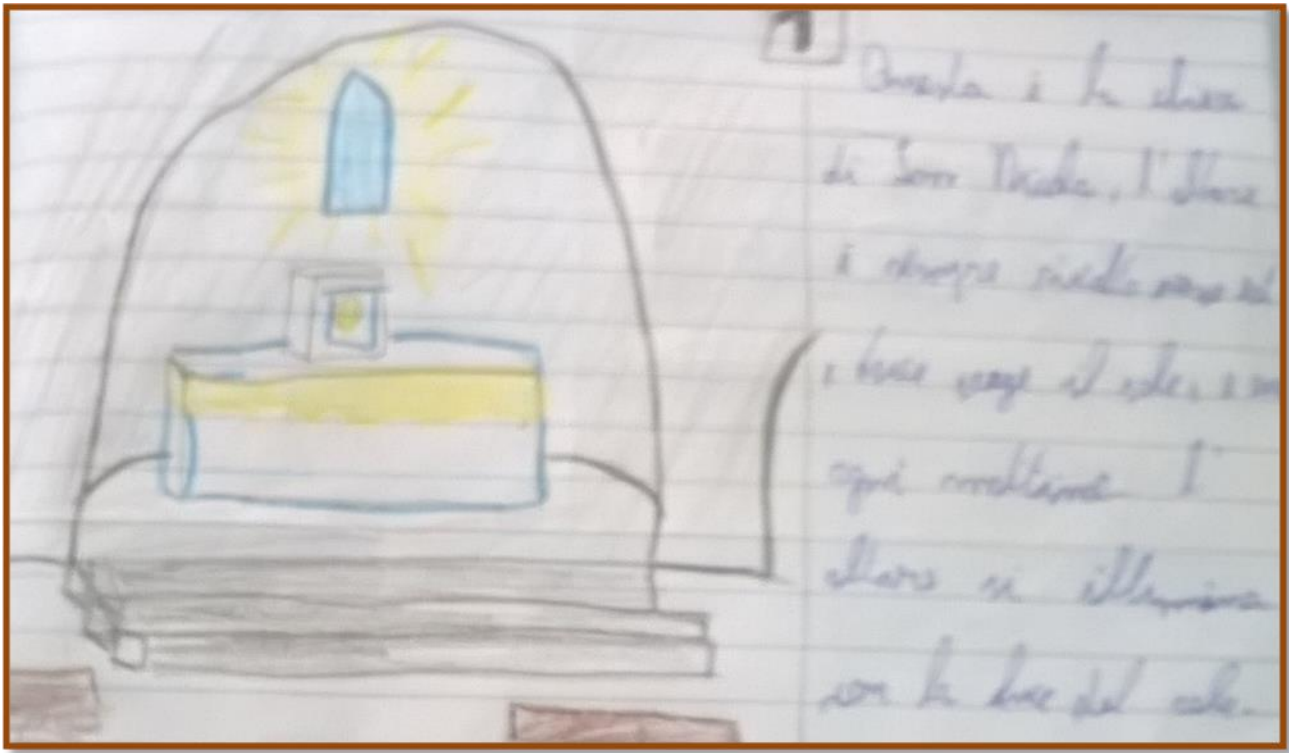 1
Questa è la chiesa
di San Nicola, l'altare
è sempre rivolto verso
dove sorge il sole, e
ogni mattina l'
altare si illumina
con la luce del sole.